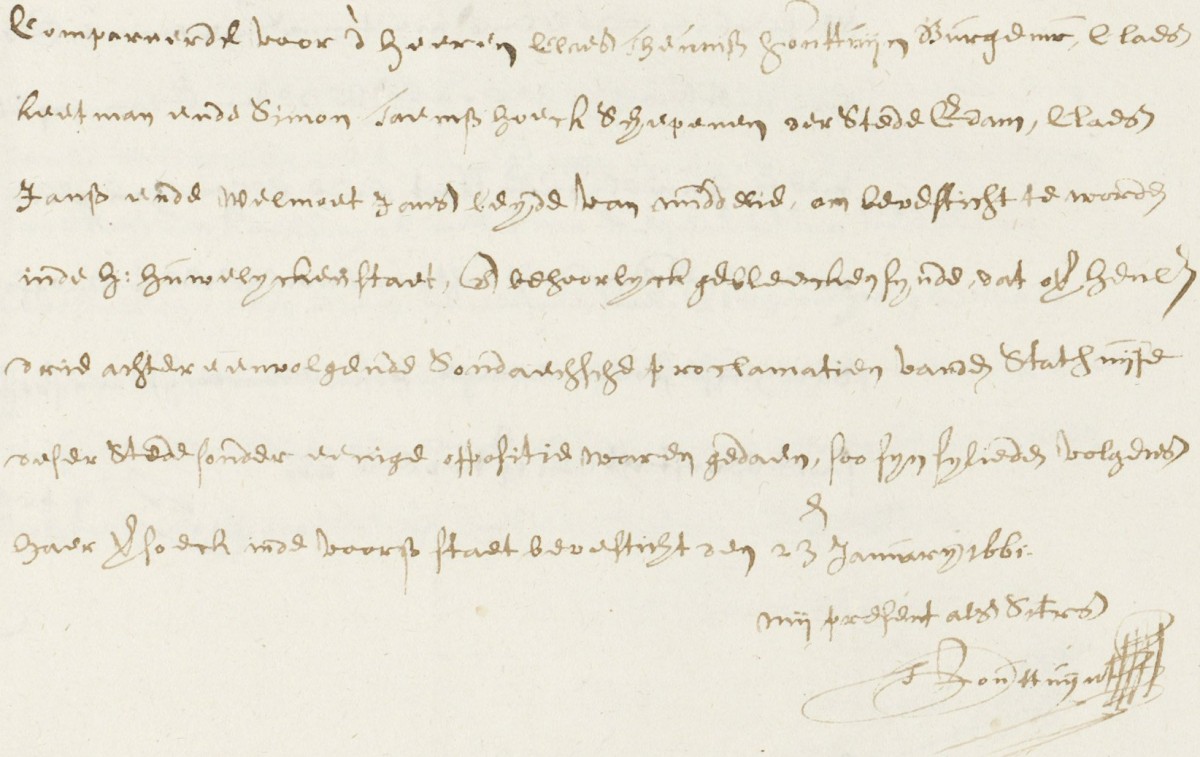 Compareerde voor d' heeren Claes Theuniß Houttuijn Burgemr, Claes
keetman ende Simon Taemß hoeck Schepenen der Stede Edam, Claes
Janß ende Welmoet Jans beyde van middelie, om bevesticht te worden
inde H: Huwelyckenstaet, Ende behoorlyck gebleecken synde, dat over henl:
drie achter eenvolgende Sondaechsche proclamatien vanden Stathuijse
deser Stede sonder eenige oppositie waren gedaen, soo syn sylieden volgens
haer versoeck inde voorß staet bevesticht den 23 January 1661.
mij present als Secrets
T Houttuijn